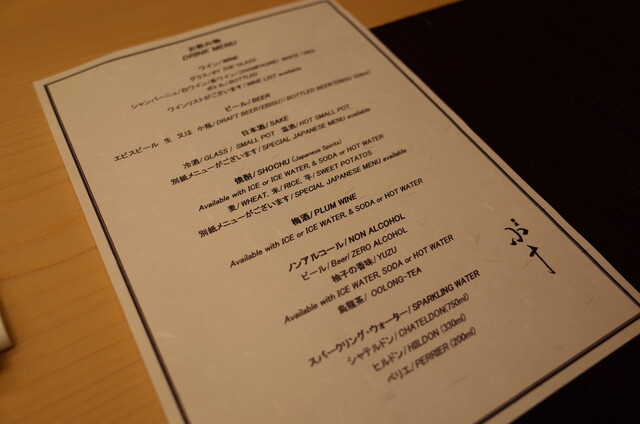 お飲み物
DRINK MENU
ワイン/WINE
グラス/BY THE GLASS
シャンパーニュ/白ワイン/赤ワイン/CHAMPAGNE/WHITE/RED
ボトル/BOTTLED
ワインリストがございます/WINE LIST available
ビール/BEER
エビスビール 生 又は 小瓶/DRAFT BEER(EBISU)/BOTTLED BEER(EBISU 334ml)
日本酒/SAKE
冷酒/GLASS/ SMALL POT 温酒/HOT SMALL POT
別紙メニューがございます/SPECIAL JAPANESE MENU available
焼酎/SHOCHU (Japanese Spirits)
Available with ICE or ICE WATER, & SODA or HOT WATER
麦/WHEAT, 米/RICE, 芋/SWEET POTATOS
別紙メニューがございます/SPECIAL JAPANESE MENU available
梅酒/PLUM WINE
Available with ICE or ICE WATER, & SODA or HOT WATER
ノンアルコール/NON ALCOHOL
ビール/Beer/ZERO ALCOHOL
柚子の香味/YUZU
Available with ICE WATER, SODA or HOT WATER
烏龍茶/ OOLONG-TEA
スパークリング・ウォーター/SPARKLING WATER
シャテルドン/CHATELDON(750ml)
ヒルドン/HILDON (330ml)
ペリエ/PERRIER (200ml)